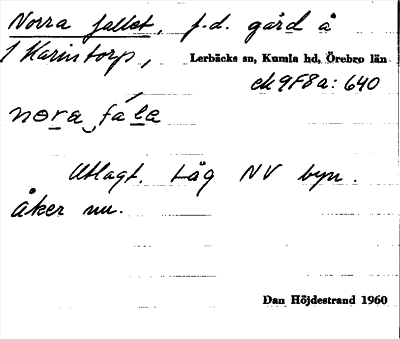 Norra fallet, f.d. gård å
1 Karintorp,
Lerbäcks sn, Kumla hd, Örebro län
ek 9F8a: 640
nora fála
Utlagt. Låg NV byn.
åker nu.
Dan Höjdestrand 1960